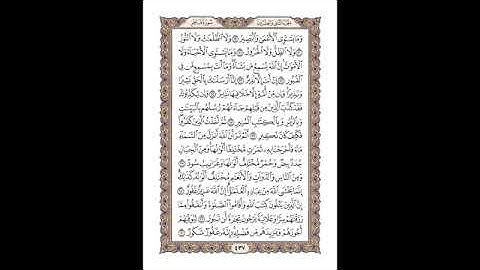 سورة فاطر الجزء الثاني والعشرون
وَمَا يَسْتَوِي ٱلْأَعْمَىٰ وَٱلْبَصِيرُ ۝١٩ وَلَا ٱلظُّلُمَٰتُ وَلَا ٱلنُّورُ
۝٢٠ وَلَا ٱلظِّلُّ وَلَا ٱلْحَرُورُ ۝٢١ وَمَا يَسْتَوِي ٱلْأَحْيَآءُ وَلَا
ٱلْأَمْوَٰتُ إِنَّ ٱللَّهَ يُسْمِعُ مَن يَشَآءُ وَمَآ أَنتَ بِمُسْمِعٍ مَّن فِي
ٱلْقُبُورِ ۝٢٢ إِنْ أَنتَ إِلَّا نَذِيرٌ ۝٢٣ إِنَّآ أَرْسَلْنَٰكَ بِٱلْحَقِّ بَشِيرًا
وَنَذِيرًا وَإِن مِّنْ أُمَّةٍ إِلَّا خَلَا فِيهَا نَذِيرٌ ۝٢٤ وَإِن يُكَذِّبُوكَ
فَقَدْ كَذَّبَ ٱلَّذِينَ مِن قَبْلِهِمْ جَآءَتْهُمْ رُسُلُهُم بِٱلْبَيِّنَٰتِ
وَبِٱلزُّبُرِ وَبِٱلْكِتَٰبِ ٱلْمُنِيرِ ۝٢٥ ثُمَّ أَخَذْتُ ٱلَّذِينَ كَفَرُوا۟
فَكَيْفَ كَانَ نَكِيرِ ۝٢٦ أَلَمْ تَرَ أَنَّ ٱللَّهَ أَنزَلَ مِنَ ٱلسَّمَآءِ
مَآءً فَأَخْرَجْنَا بِهِۦ ثَمَرَٰتٍ مُّخْتَلِفًا أَلْوَٰنُهَا وَمِنَ ٱلْجِبَالِ
جُدَدٌۢ بِيضٌ وَحُمْرٌ مُّخْتَلِفٌ أَلْوَٰنُهَا وَغَرَابِيبُ سُودٌ
۝٢٧ وَمِنَ ٱلنَّاسِ وَٱلدَّوَآبِّ وَٱلْأَنْعَٰمِ مُخْتَلِفٌ أَلْوَٰنُهُۥ كَذَٰلِكَ
إِنَّمَا يَخْشَى ٱللَّهَ مِنْ عِبَادِهِ ٱلْعُلَمَٰٓؤُا۟ إِنَّ ٱللَّهَ عَزِيزٌ غَفُورٌ ۝٢٨
إِنَّ ٱلَّذِينَ يَتْلُونَ كِتَٰبَ ٱللَّهِ وَأَقَامُوا۟ ٱلصَّلَوٰةَ وَأَنفَقُوا۟ مِمَّا
رَزَقْنَٰهُمْ سِرًّا وَعَلَانِيَةً يَرْجُونَ تِجَٰرَةً لَّن تَبُورَ ۝٢٩ لِيُوَفِّيَهُمْ
أُجُورَهُمْ وَيَزِيدَهُم مِّن فَضْلِهِۦٓ إِنَّهُۥ غَفُورٌ شَكُورٌ ۝٣٠
٤٣٧